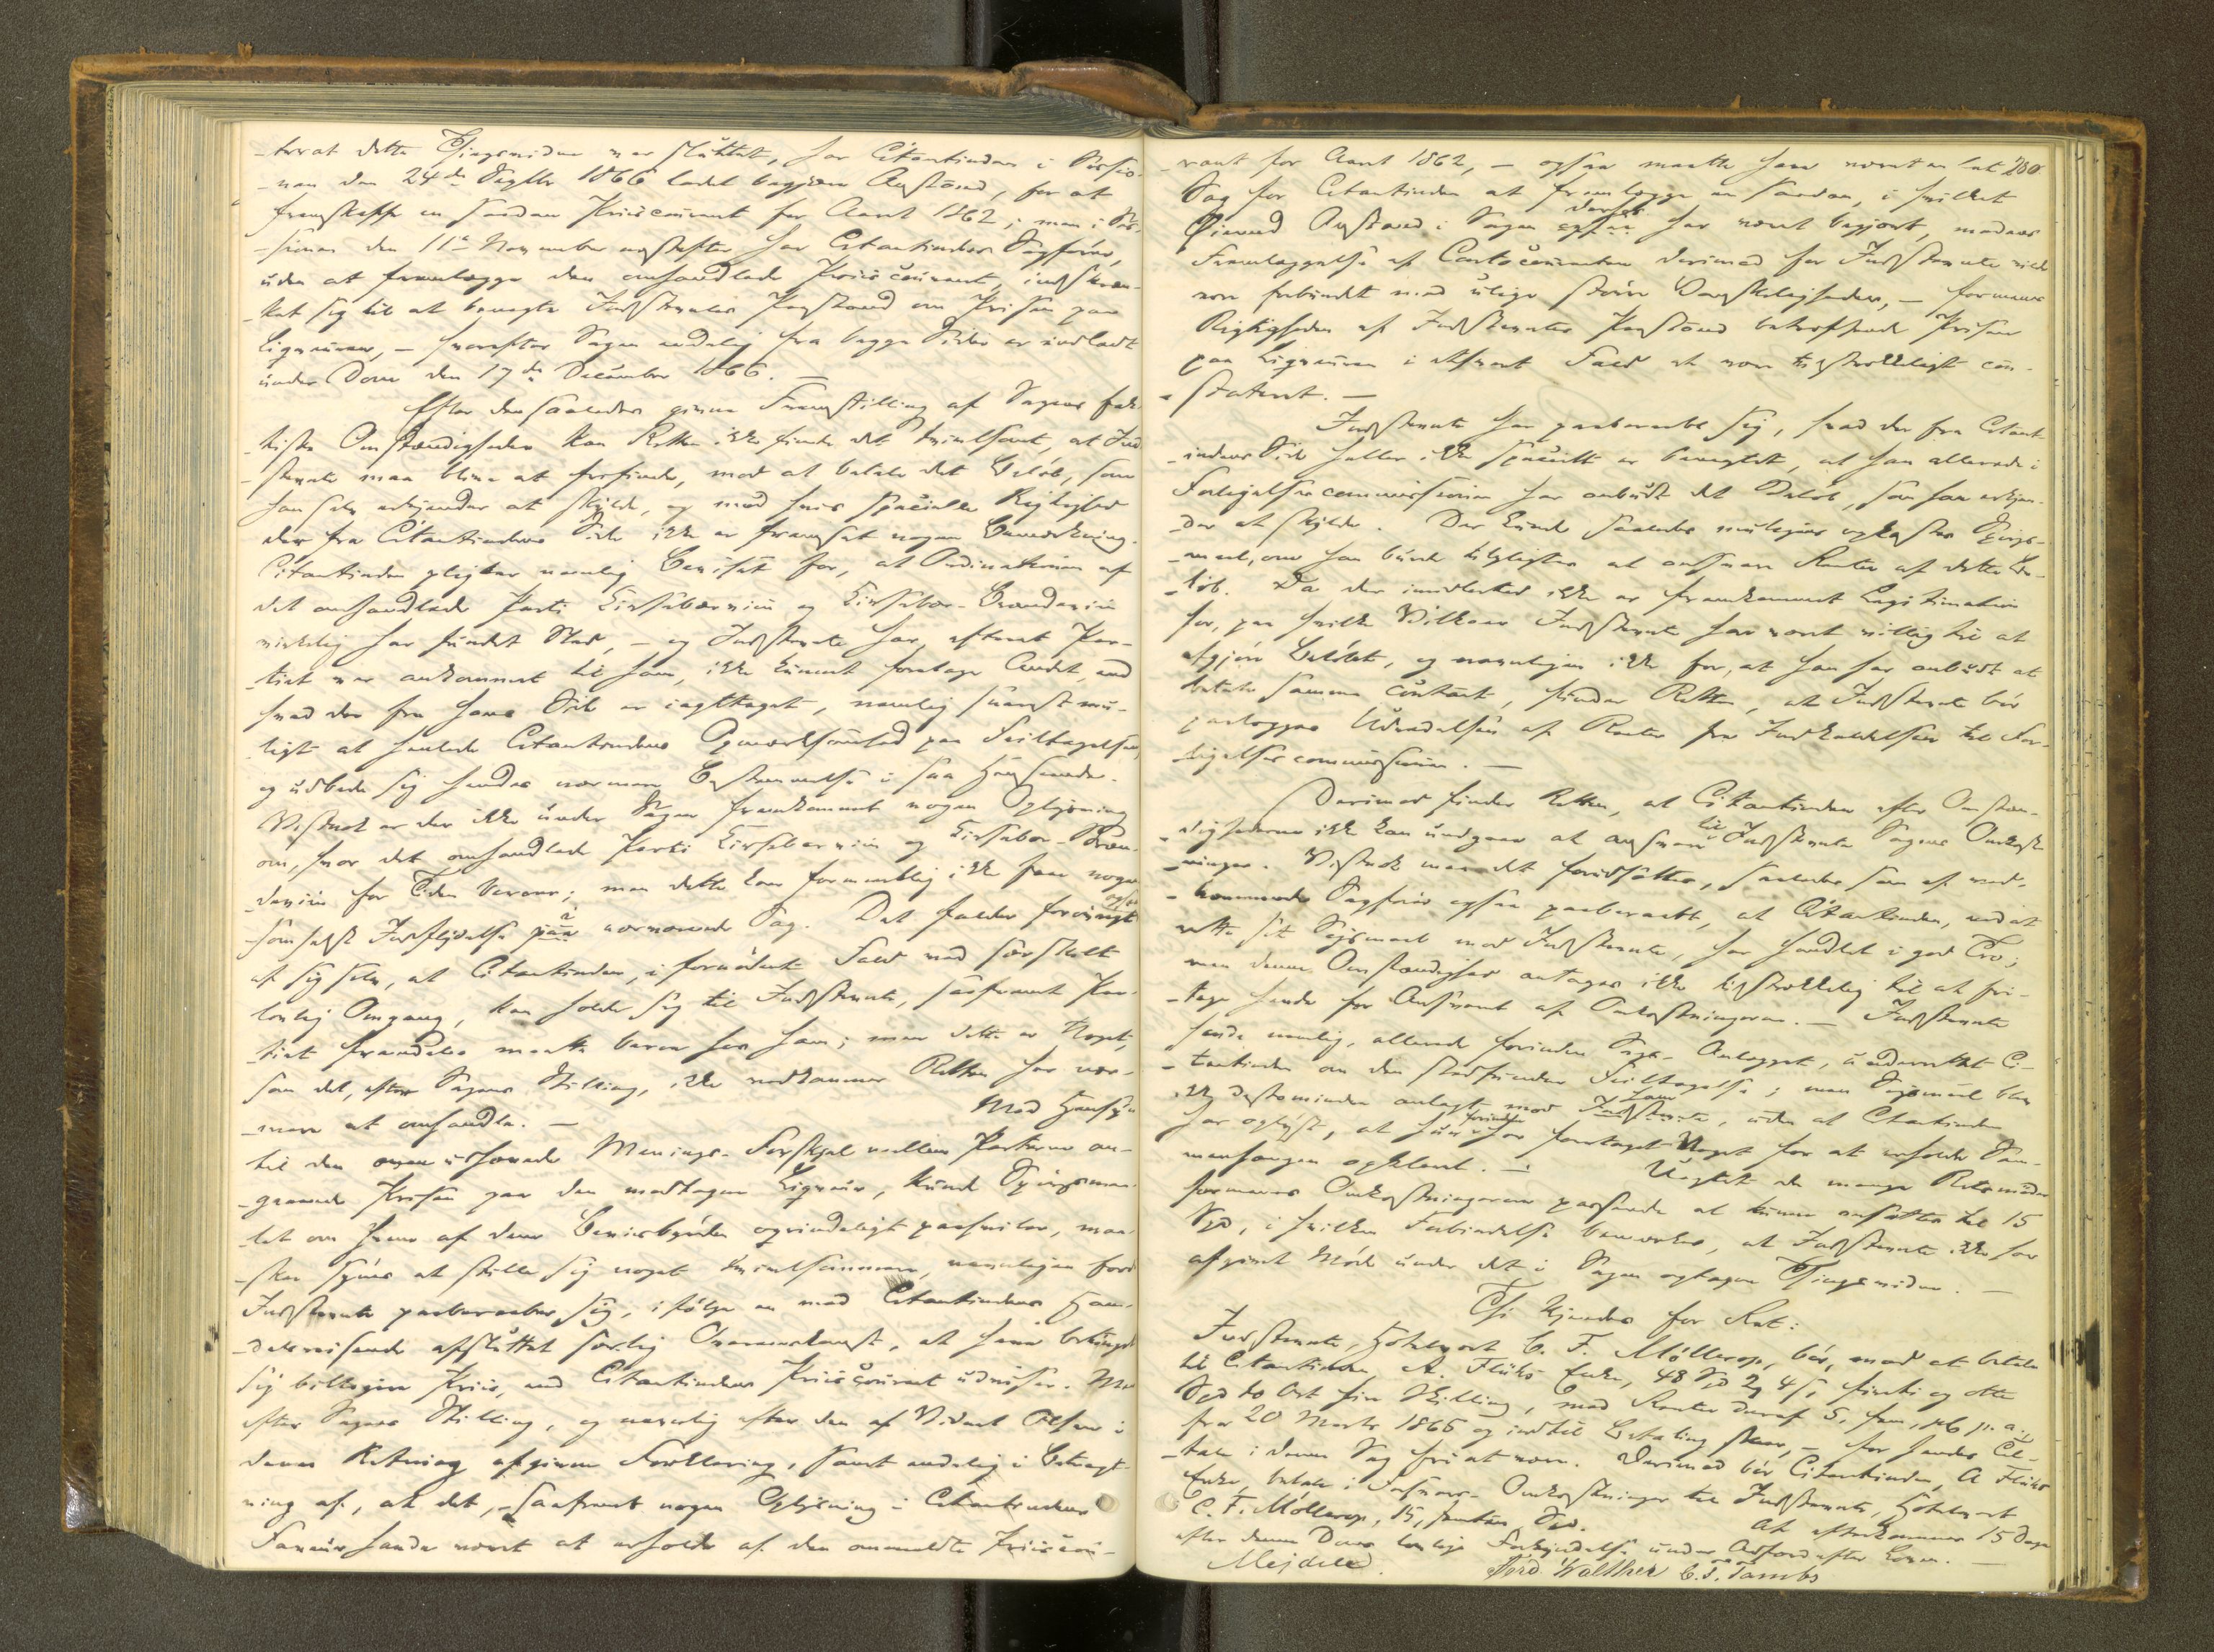 -terat dette Thingsvidne var sluttet, har Citantinden i Sessio-
-nen den 24de Septbr 1866 ladet begjære Anstand, for at
fremskaffe en saadan Priiscourant for Aaret 1862; men i Ses-
-sionen den 11te November næstefter har Citantindens Sagfører,
uden at fremlægge den omhandlede Priiscourant, indskræn-
-ket sig til at benegte Indstevntes Paastand om Prisen paa
Liqueuren, — hvorefter Sagen endelig fra begge Sider er indladt
under Dom den 17de December 1866. —
Efter den saaledes givne Fremstilling af Sagens fak-
-tiske Omstændigheder kan Retten ikke finde det tvivlsomt, at Ind-
-stevnte maa blive at frifinde, mod at betale det Beløb, som
han selv erkjender at skylde, og mod hvis specielle Rigtighed
der fra Citantindens Side ikke er fremsat nogen Bemærkning.
Citantinden pligter nemlig Beviset for, at Ordinationen af
det omhandlede Parti Kirsebærviin og Kirsebær-Brændeviin
virkelig har fundet Sted, — og Indstevnte har, efterat Par-
-tiet var ankommet til ham, ikke kunnet foretage Andet, end
hvad der fra hans Side er iagttaget, nemlig snarest mu-
-ligt at henlede Citantindens Opmærksomhed paa Feiltagelsen,
og udbede sig hendes nærmere Bestemmelse i saa Henseende.
Vistnok er der ikke under Sagen fremkommet nogen Oplysning
om, hvor det omhandlede Parti Kirsebærviin og Kirsebær-Bræn-
-deviin for Tiden beroer; men dette kan formentlig ikke faae nogen
somhelst Indflydelse paa nærværende Sag. Det falder forøvrigt
af sig selv, at Citantinden, i fornødent Fald med særskilt
lovlig Omgang, kan holde sig til Indstevnte, saafremt Par-
-tiet fremdeles maatte beroe hos ham; men dette er Noget,
som det, efter Sagens Stilling, ikke vedkommer Retten her nær-
-mere at omhandle. —
Med Hensyn
til den ovenanførte Menings-Forskjel mellem Parterne an-
-gaaende Prisen paa den modtagne Liqueur, kunde Spørgsmaa-
-let om hvem af dem Beviisbyrden oprindeligt paahviler, maa-
-skee synes at stille sig noget tvivlsommere, navnligen fordi
Indstevnte paaberaaber sig, ifølge en med Citantindens Han-
-delsreisende afsluttet særlig Overeenskomst, at have betinget
sig billigere Priis, end Citantindens Priiscourant udviser. Men
efter Sagens Stilling, og navnlig efter den af Vidnet Olsen i
denne Retning afgivne Forklaring, samt endelig i Betragt-
ning af, at det, saafremt nogen Oplysning i Citantindens
Faveur havde været at erholde af den omemeldte Priiscou-
-rant for Aaret 1862, — ogsaa maatte have været en let 280.
Sag for Citantinden at fremlægge en saadan, i hvilket
Øiemed Anstand i Sagen derhos har været begjært, medens
Fremlæggelse af Contocouranten derimod for Indstevnte vilde
være forbundet med ulige større Vanskeligheder, — formenes
Rigtigheden af Indstevntes Paastand betræffende Prisen
paa Liqueuren i ethvert Fald at være tilstrækkeligt con-
-stateret. —
Indstevnte har paaberaabt sig, hvad der fra Citant-
-indens Side heller ikke specielt er benegtet, at han allerede i
Forligelsescommissionen har anbudt det Beløb, som han erkjen-
-der at skylde. Der kunde saaledes muligens opkastes Spørgs-
-maal, om han burde tilpligtes at ansvare Renter af dette Be-
-løb. Da der imidlertid ikke er fremkommet Legitimation
for, paa hvilke Vilkaar Indstevnte har været villig til at
afgjøre Beløbet, og navnligen ikke for, at han har anbudt at
betale samme contant, finder Retten, at Indstevnte bør
paalægges Udredelsen af Renter fra Indkaldelsen til For-
-ligelsescommissionen. —
Derimod finder Retten, at Citantinden efter Omstæn-
-dighederne ikke kan undgaae at ansvare til Indstevnte Sagens Omkost-
-ninger. Vistnok maa det forudsættes, saaledes som af ved-
-kommende Sagfører ogsaa paaberaabt, at Citantinden, ved at
rette sit Søgsmaal mod Indstevnte, har handlet i god Tro;
men denne Omstændighed antages ikke tilstrækkelig til at fri-
-tage hende for Ansvaret af Omkostningerne. — Indstevnte
havde nemlig, allerede forinden Sags-Anlægget, underrettet Ci-
-tantinden om den stedfundne Feiltagelse; men Søgsmaal blev
ikke destomindre anlagt mod ham, uden at Citantinden
har oplyst, at hun forinden har foretaget Noget for at erholde Sam-
menhængen opklaret. —
Uagtet de mange Retsmøder
formenes Omkostningerne passende at kunne ansættes til 15
Spd, i hvilken Forbindelse bemærkes, at Indstevnte ikke har
afgivet Møde under det i Sagen optagne Thingsvidne. —
Thi kjendes for Ret:
Indstevnte, Hotelvært C. F. Møllerop, bør, mod at betale
til Citantinden, A. Flüks Enke, 48 Spd 2 4 s, firti og otte
Spd to Ort fire Skilling, med Renter deraf 5, fem, pC p. a.,
fra 20 Marts 1866 og indtil Betaling skeer, — for hendes Til-
-tale i denne Sag fri at være. Derimod bør Citantinden, A Flüks
Enke, betale i Processens Omkostninger til Indstevnte, Hotelvært
C. F. Møllerop, 15, femten Spd. At efterkommes 15 Dage
efter denne Doms lovlige Forkyndelse under Adfærd efter Loven. —
Mejdell. Ferd. Walther C. F. Tambs